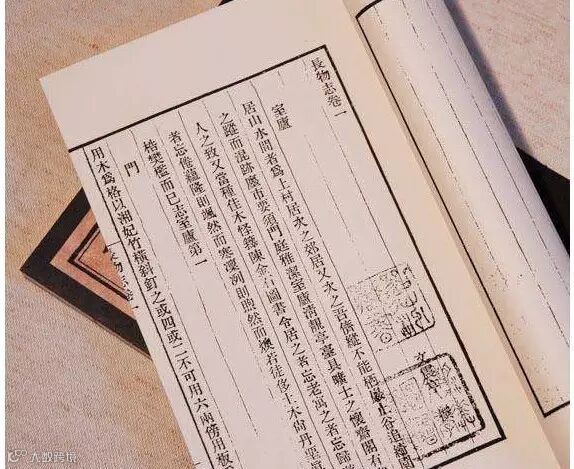 長物志卷一
室廬
居山水間者爲上村居次之郊居又次之吾儕縱不能棲巖止谷追綺園
之蹤而混跡廛市要須門庭雅潔室廬清靚亭臺具曠士之懷齋閣有
人之致又當種佳木怪籜陳金石圖書令居之者忘老寓之者忘歸
者忘倦蘊隆則颯然而寒凜冽則煦然而燠若徒侈土木尚丹堊
梏樊檻而已志室廬第一
門
用木爲格以湘妃竹橫斜釘之或四或二不可用六兩傍用板
物志卷一
大数跨境